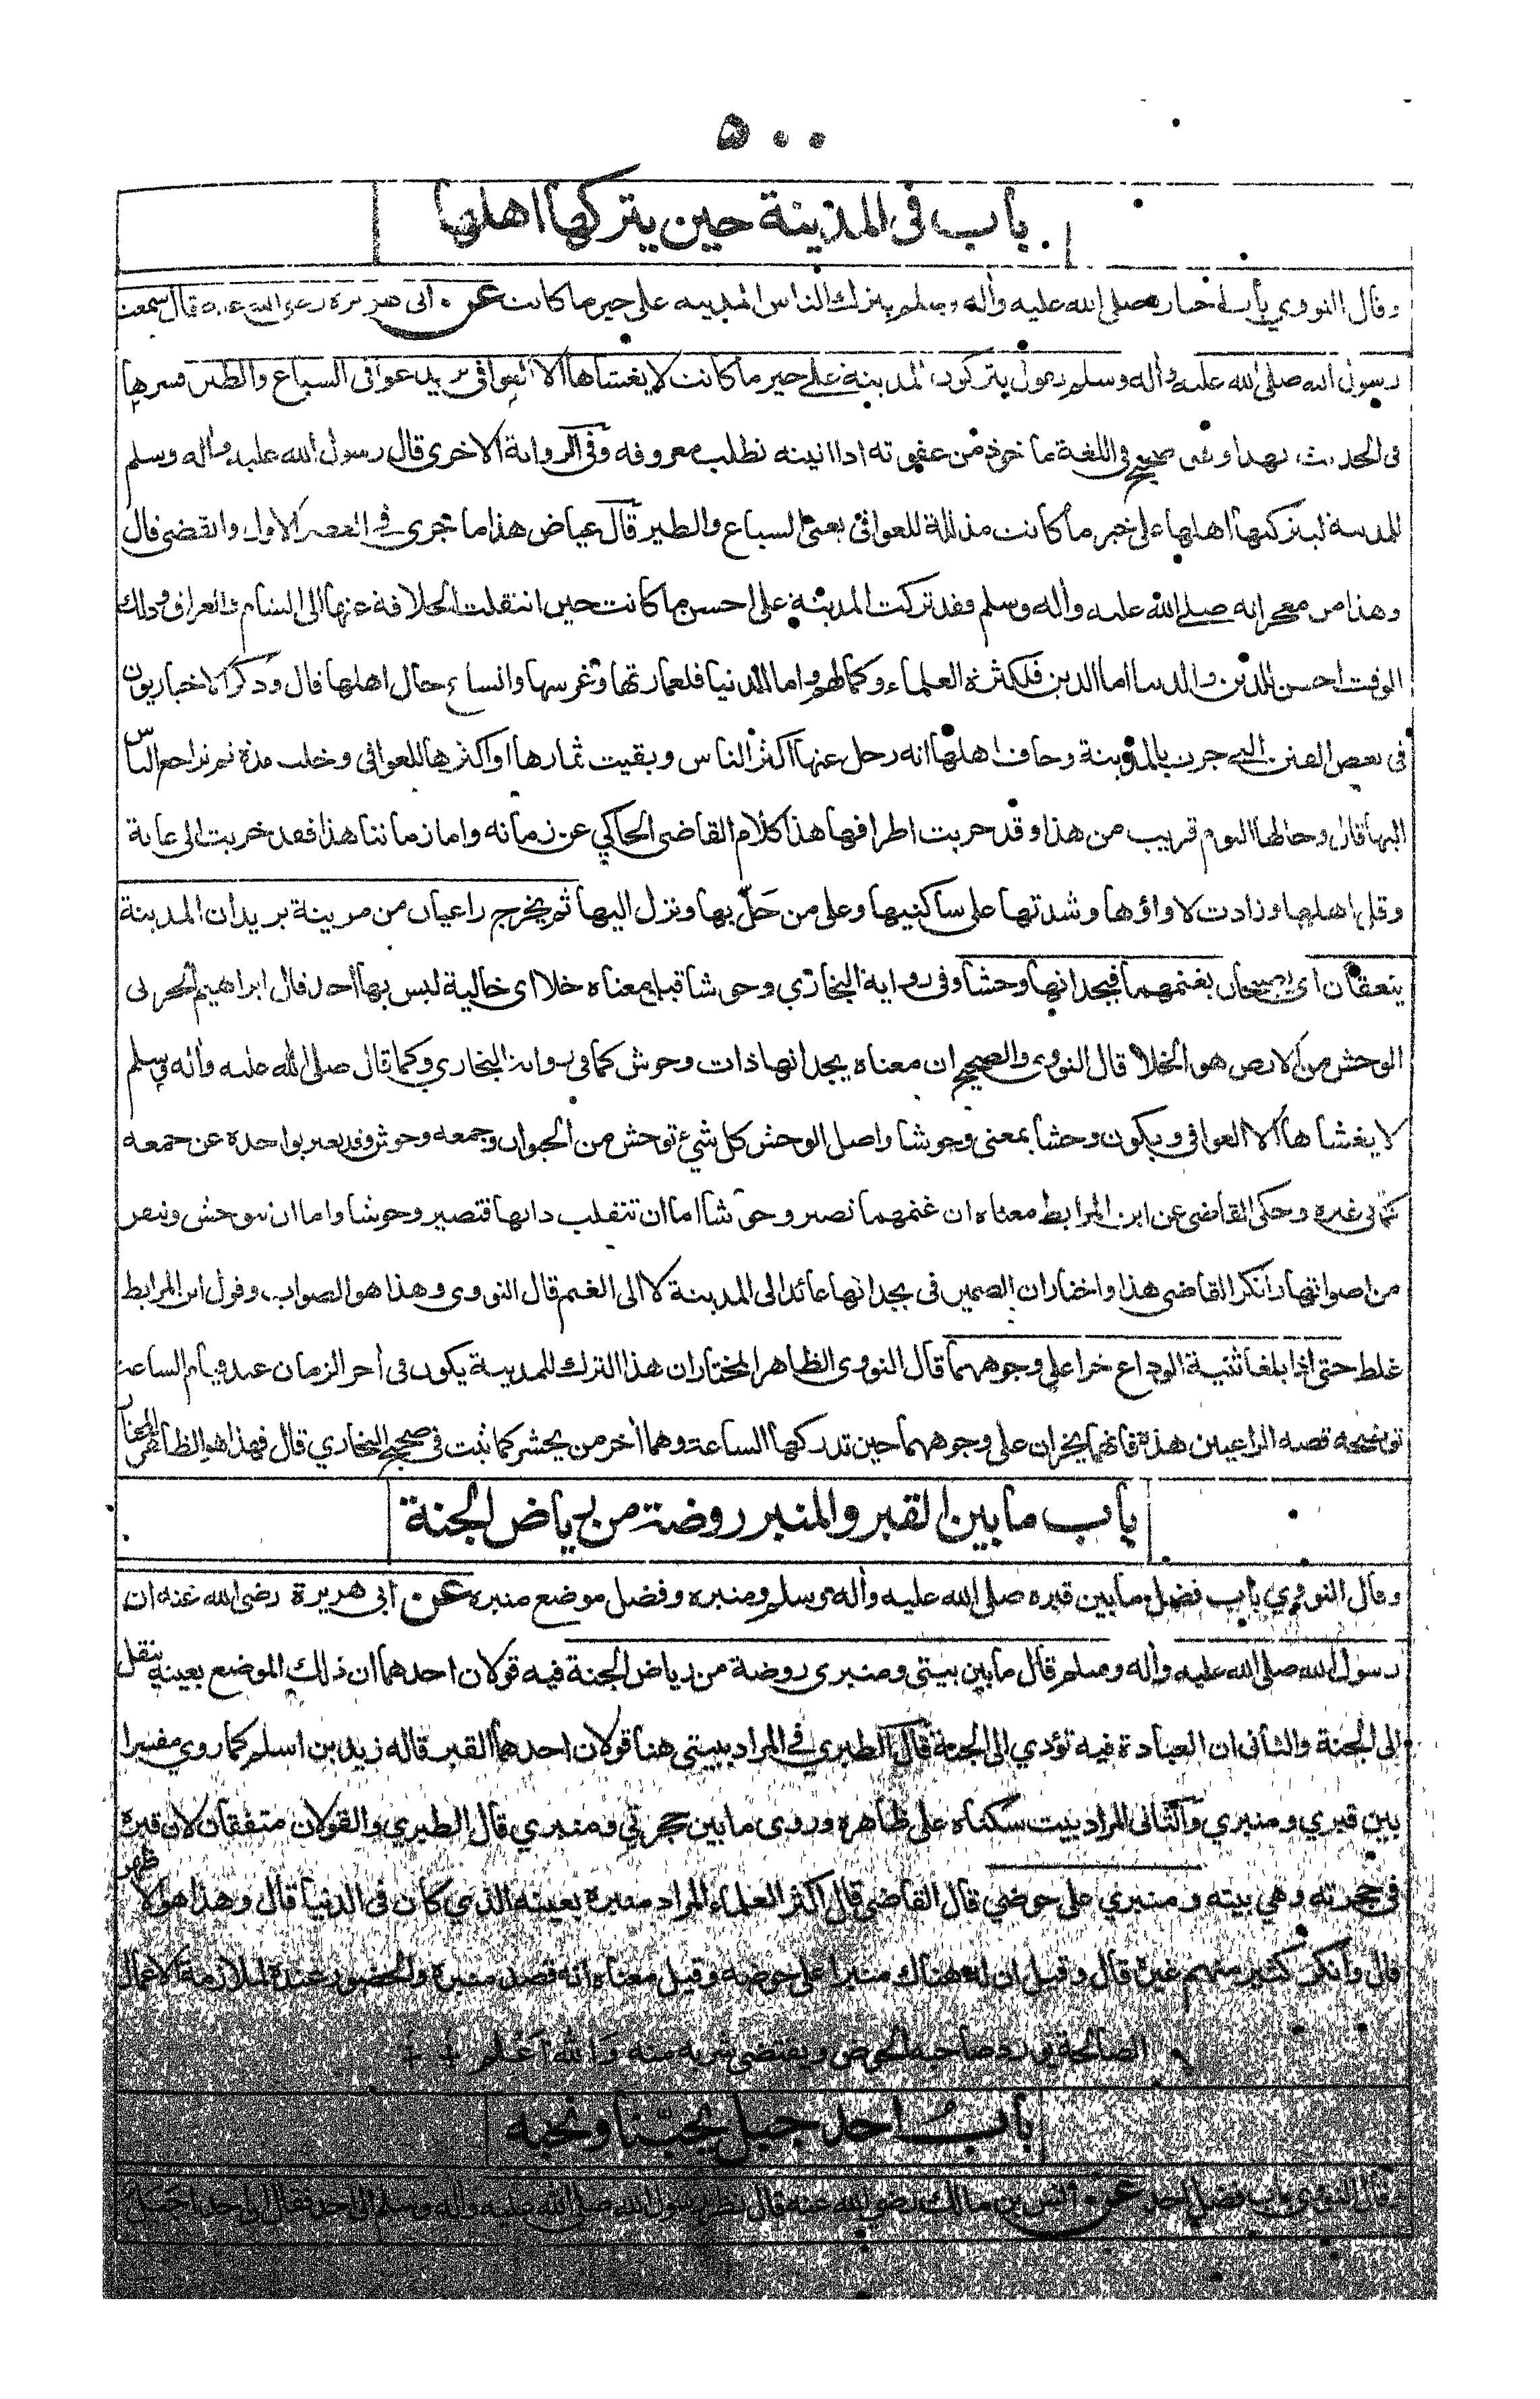 ٥٠٠
باب فى المدينة حين يتركها اهلها
وقال النووي باب اخباره صلى الله عليه وأله وسلم بترك الناس المدينة على خير ما كانت عن ابى هريرة رضى الله عنه قال سمعت
رسول الله صلى الله عليه وأله وسلم يقول يتركون المدينة على خير ما كانت لا يغشاها الا العوافى يريد عوافى السباع والطير فسرها
فى الحديث بهذا وهو صحيح فى اللغة ماخوذ من عفوته اذا اتيته تطلب معروفه وفى الرواية الاخرى قال رسول الله عليه وأله وسلم
للمدينة ليتركنها اهلها على خير ما كانت مذللة للعوافى يعنى السباع والطير قال عياض هذا ما جرى فى العصر الاول وانقضى قال
وهذا من معجزاته صلى الله عليه وأله وسلم فقد تركت المدينة على احسن ما كانت حين انتقلت الخلافة عنها الى الشام والعراق وذلك
الوقت احسن للدين والدنيا اما الدين فلكثرة العلماء وكمالهم واما الدنيا فلعمارتها وغرسها واتساع حال اهلها قال وذكر الاخباريون
فى بعض الفتن التي جرت بالمدينة وخاف اهلها انه رحل عنها اكثر الناس وبقيت ثمارها او اكثرها للعوافى وخلت مدة ثم تراجع الناس
اليها قال وحالها اليوم قريب من هذا وقد خربت اطرافها هذا كلام القاضى الحاكي عن زمانه واما زماننا هذا فقد خربت الى غاية
وقل اهلها وزادت لاواؤها وشدتها على ساكنيها وعلى من حَلّ بها ونزل اليها ثم يخرج راعيان من مزينة يريدان المدينة
ينعقان اى يصيحان بغنمهما فيجدانها وحشا وفى رواية البخاري وحوشا قيل معناه خلا اى خالية ليس بها احد قال ابراهيم الحربى
الوحش من الارض هو الخلا قال النووى والصحيح ان معناه يجدانها ذات وحوش كما فى رواية البخاري وكما قال صلى الله عليه وأله وسلم
لا يغشاها الا العوافى ويكون وحشا بمعنى وحوشا واصل الوحش كل شيء توحش من الحيوان وجمعه وحوش وقد يعبر بواحده عن جمعه
كما فى غيره وحكى القاضى عن ابن المرابط معناه ان غنمهما تصير وحوشا اما ان تنقلب ذاتها فتصير وحوشا واما ان تتوحش وتنفر
من اصواتها وانكر القاضى هذا واختار ان الضمير فى يجدانها عائد الى المدينة لا الى الغنم قال النووى وهذا هو الصواب وقول ابن المرابط
غلط حتى اذا بلغا ثنية الوداع خرا على وجوههما قال النووى الظاهر المختار ان هذا الترك للمدينة يكون فى أخر الزمان عند قيام الساعة
توضيحه قصة الراعيين هذه فانهما يخران على وجوههما حين تدركها الساعة وهما أخر من يحشر كما ثبت فى صحيح البخاري قال فهذا هو الظاهر المختار
باب ما بين القبر والمنبر روضة من رياض الجنة
وقال النووي باب فضل ما بين قبره صلى الله عليه وأله وسلم ومنبره وفضل موضع منبره عن ابى هريرة رضى الله عنه ان
رسول الله صلى الله عليه وأله وسلم قال ما بين بيتى ومنبرى روضة من رياض الجنة فيه قولان احدهما ان ذلك الموضع بعينه ينقل
الى الجنة والثانى ان العبادة فيه تؤدي الى الجنة قال الطبري فى المراد ببيتى هنا قولان احدهما القبر قاله زيد بن اسلم كما روي مفسرا
بين قبري ومنبري والثانى المراد بيت سكناه على ظاهره وروى ما بين حجرتي ومنبري قال الطبري والقولان متفقان لان قبره
فى حجرته وهي بيته ومنبري على حوضي قال القاضى قال اكثر العلماء المراد منبره بعينه الذي كان فى الدنيا قال وهذا هو الاظهر
قال وانكر كثير منهم غيره قال وقيل ان له هناك منبرا على حوضه وقيل معناه ان قصد منبره والحضور عنده لملازمة الاعمال
الصالحة يورد صاحبه الحوض ويقتضى شربه منه وَالله اَعْلم
بابُ احد جبل يحبّنا ونحبه
وقال النووي باب فضل احد عن انس بن مالك رضى الله عنه قال نظر رسول الله صلى الله عليه وأله وسلم الى احد فقال ان احدا جَبَلٌ